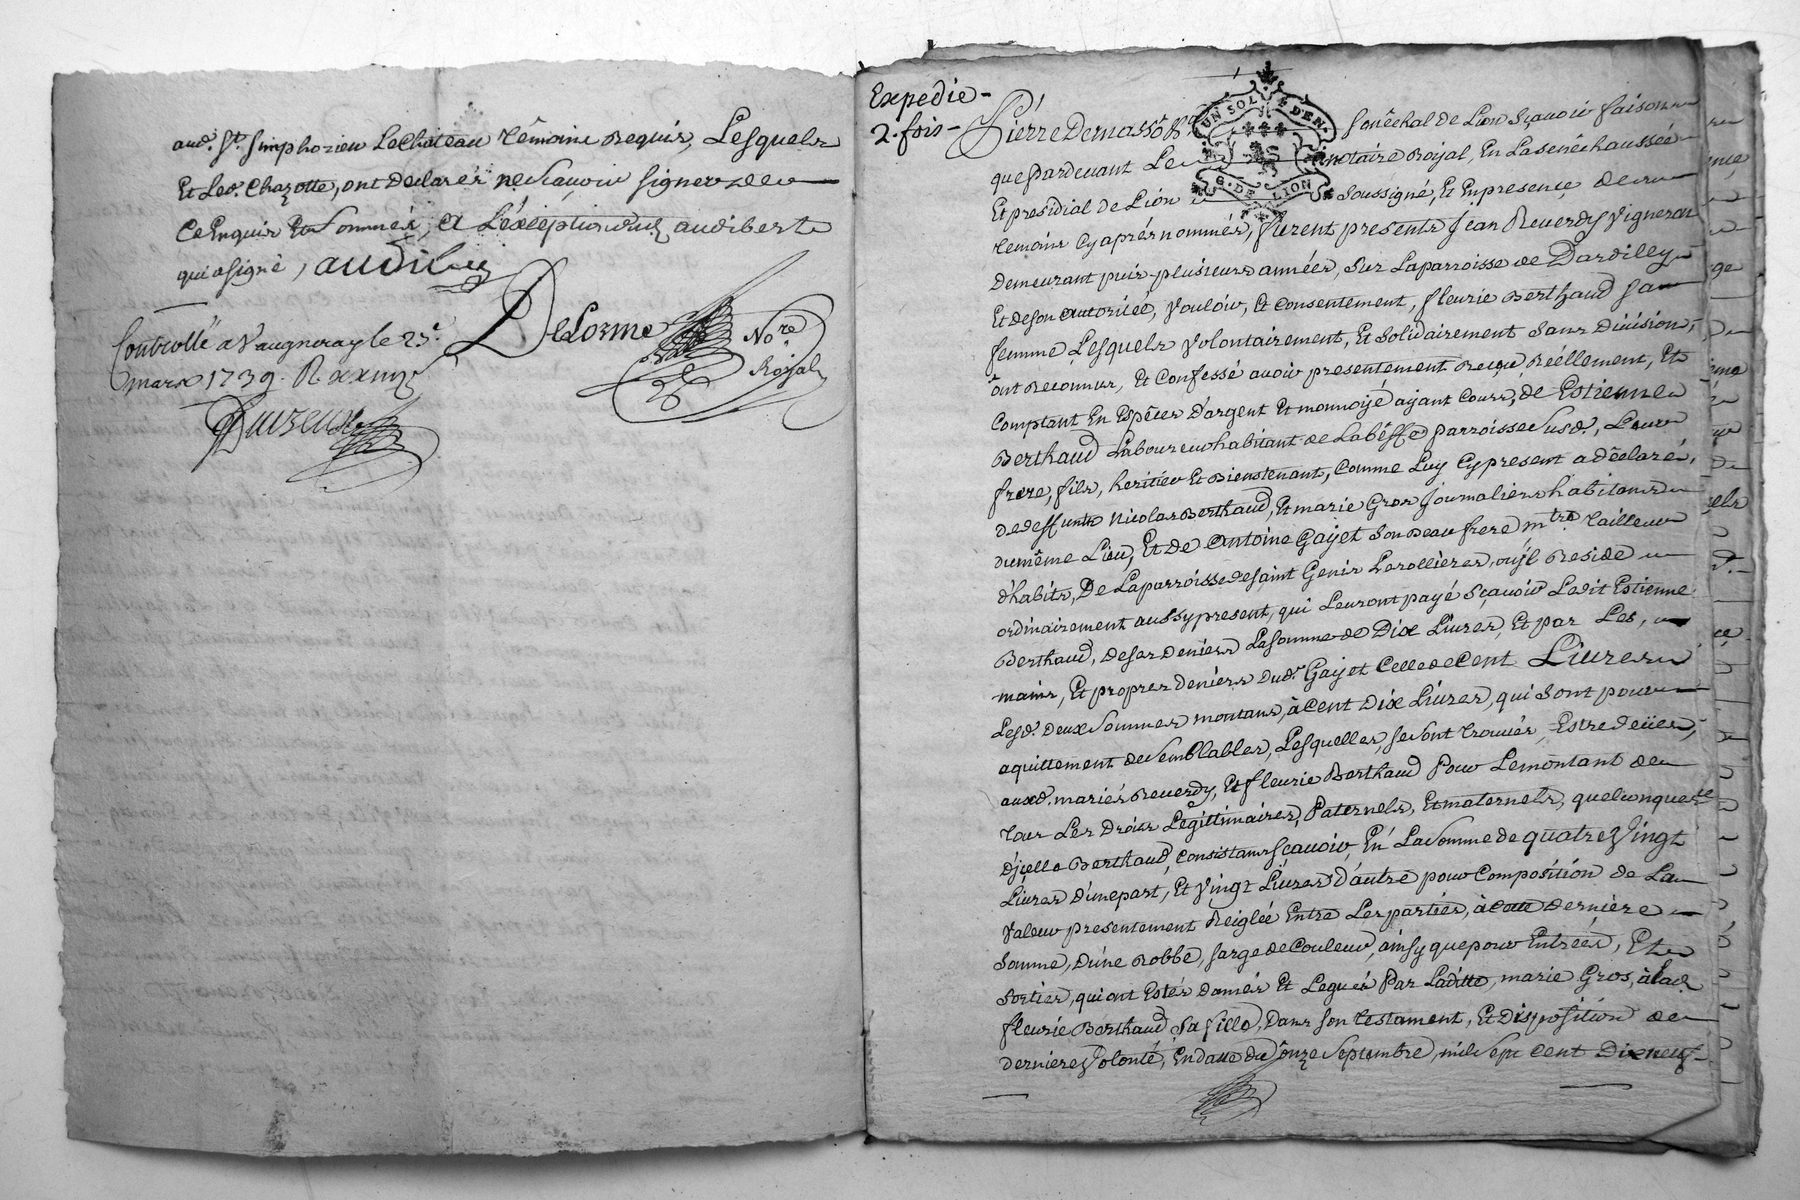 aud. St. Simphorien Le Chateau têmoins Requis, Lesquels
Et Led. Chazotte, ont Déclarér ne Scavoir signer de
ce Enquis Et Sommés, a L'éxception dud. audibert
qui a signé, audibert
Delorme No.re Royal
Controllé a Vaugneray le 23.e
mars 1739. R.
Expedie
2. fois
Pierre Dernasso
UN SOL 4 D'EN.
G. DE LION
Senêchal de Lion Sçavoir faisons
que Pardevant Le notaire Roÿal, En La senêchaussée
Et presidial de Lion soussigné, Et En presence des
temoins Cy aprés nommés, fûrent presents Jean Reverdy Vigneron
Demeurant puis plusieurs années, sur La parroisse de Dardilly
Et de son autoritéé, Vouloir, Et Consentement, fleurie Berthaud sa
femme Lesquels Volontairement, Et solidairement sans division,
ont Reconnus, Et Confessé avoir presentement Reçeu Réellement, Et
Comptant En Espêces D'argent Et monnoÿé aÿant Cours, de Estienne
Berthaud Laboureur habitant de Labéffe parroisse susd., Leur
frere, fils, heritier Et Bienstenant, Comme Luy Cy present a dêclaré,
de deffunts Nicolas Berthaud, Et marie Gros Journaliers habitans
du même Lieu, Et de Antoine Gayet son Beau frere m.tre tailleur
d'habits, De La parroisse de saint Genis Lerollieres, ou jl Reside
ordinairement aussy present, qui Leur ont payé sçavoir Ledit Estienne
Berthaud, de ses Deniers La somme de Dix Livres, Et par Les,
mains, Et propres deniers dud. Gayet Celle de Cent Livres
Lesd. deux sommes montans, à Cent Dix Livres, qui sont pour
aquittement de semblables, Lesquelles, se sont trouvés, Estre deües,
auxd. mariés Reverdy, Et fleurie Berthaud pour Le montant de
tous Les Droits Legittimaires, Paternels, Et maternels, quelconques
D'jcelle Berthaud, Consistans sçavoir, En La somme de quatre Vingt
Livres d'une part, Et Vingt Livres d'autre pour Composition de La
Valeur presentement Reiglée Entre Les parties, à cette derniêre
somme, d'une Robbe, sarge de Couleur, ainsy que pour Entrées, Et
sorties, qui ont Estés donnés Et Legués Par Laditte, marie Gros, à Lad.
fleurie Berthaud sa fille, Dans son testament, Et disposition de
derniere Volonté, En datte du onze septembre, mil sept cent Dixneuf